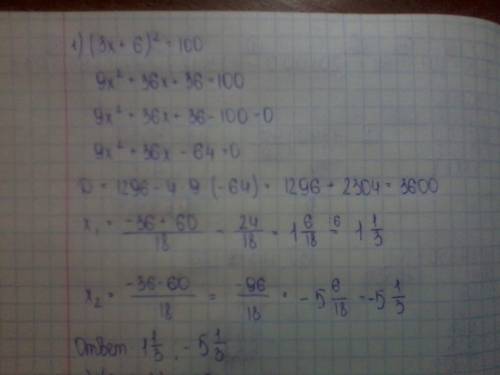 1) (3x + 6)² = 100
9x² + 36x + 36 = 100
9x² + 36x + 36 - 100 = 0
9x² + 36x - 64 = 0
D = 1296 - 4 · 9 · (-64) = 1296 + 2304 = 3600
x₁ = (-36 + 60)/18 = 24/18 = 1 6/18 = 1 1/3
x₂ = (-36 - 60)/18 = -96/18 = -5 6/18 = -5 1/3
Ответ 1 1/3, -5 1/3